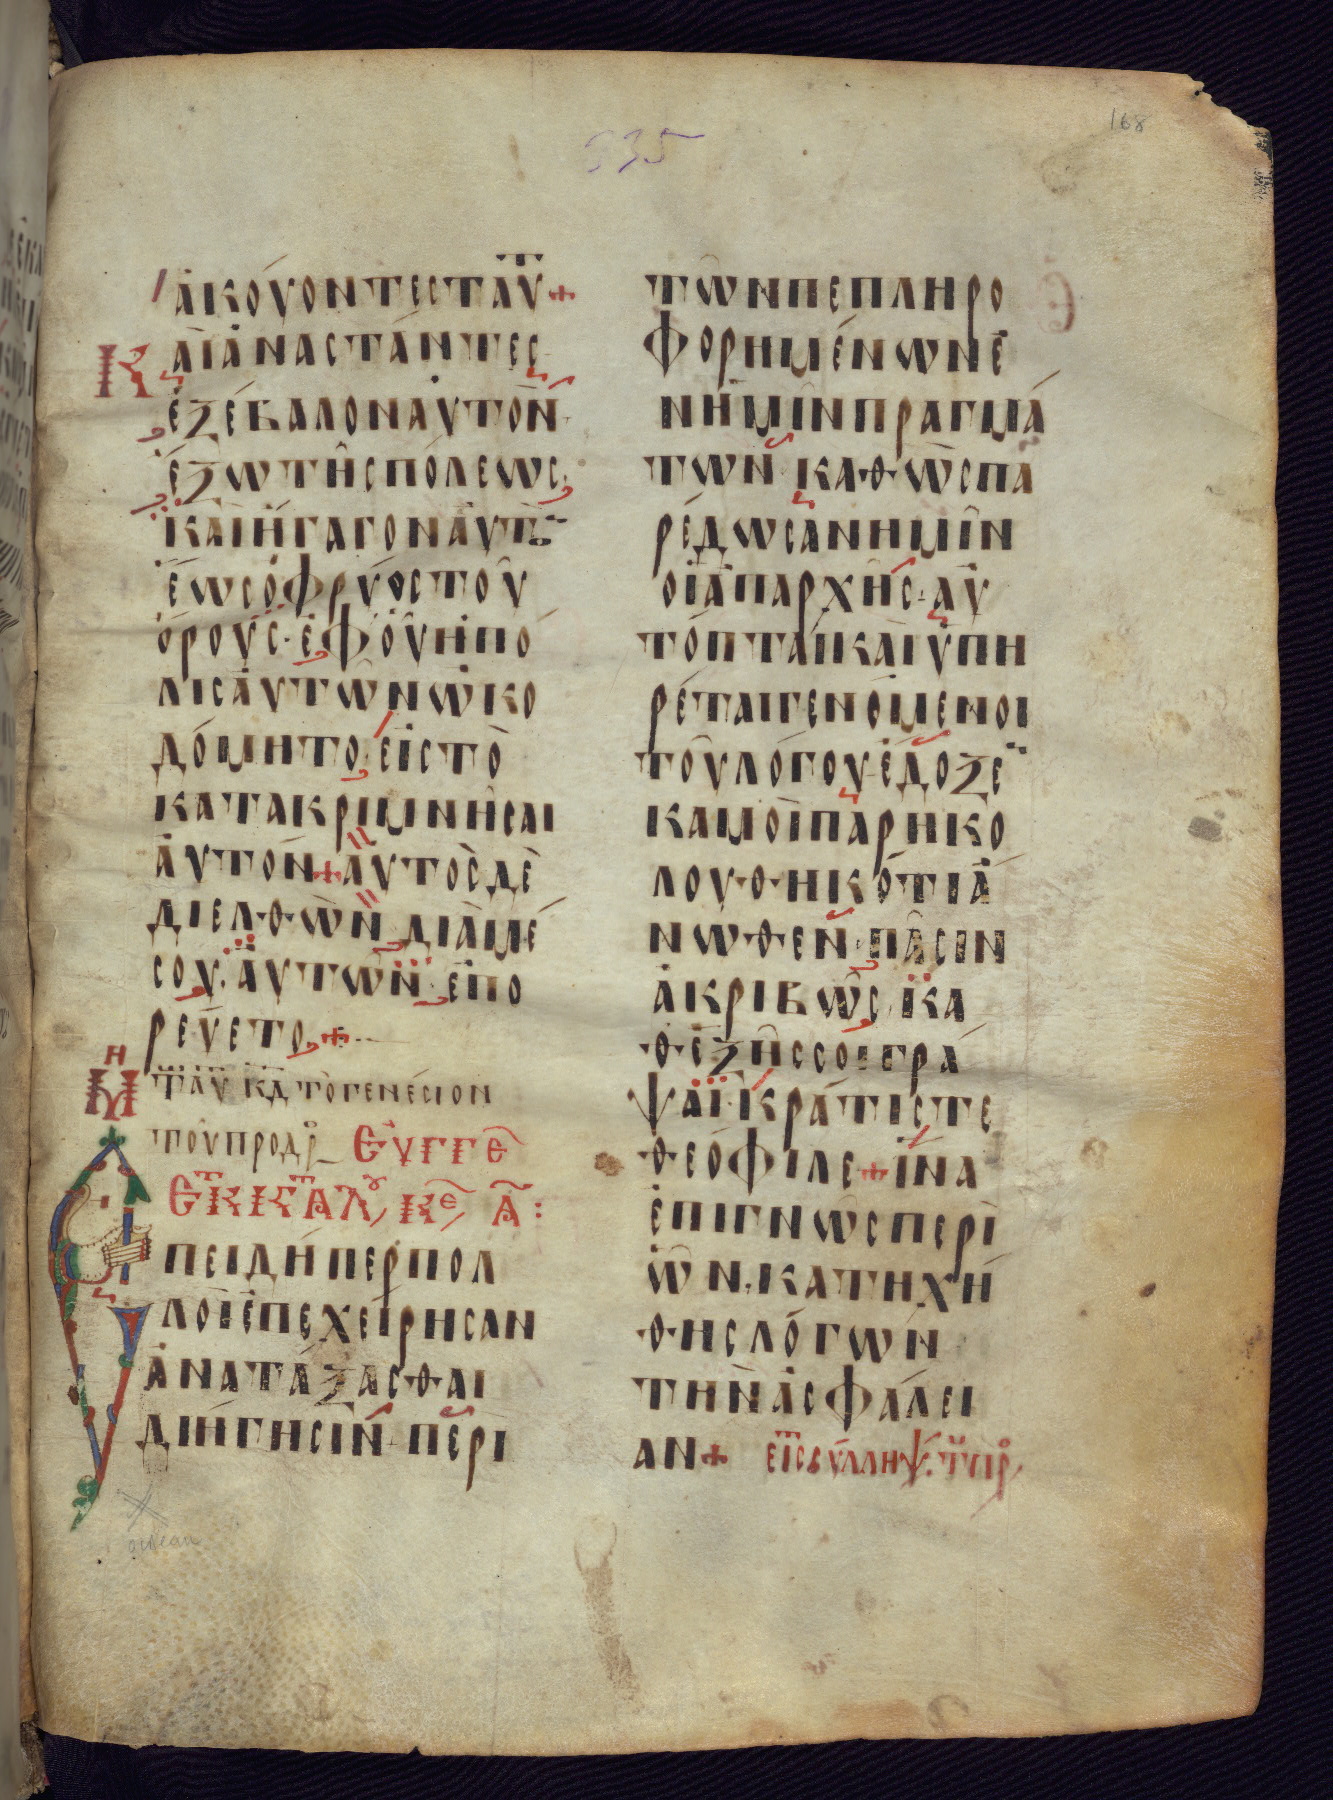 168
535
ἀκούοντες ταῦτ +
Κ
αὶ ἀναστάντες
ἐξέβαλον αὐτὸν
ἔξω τῆς πόλεως,
καὶ ἤγαγον αὐτὸ
ἕως ὀφρύος τοῦ
ὄρους· ἐφ οὗ ἡ πό
λις αὐτῶν ᾠκο
δόμητο, εἰς τὸ
κατακρημνῆσαι
αὐτόν + αὐτὸς δὲ
διελθὼν διὰ μέ
σου αὐτῶν ἐπο
ρεύετο +
Μη
τ αυ κδ τὸ γενέσιον
τοῦ προδρ Εὐγγε
Εκ κτ Λ κε Α:
πειδήπερ πολ
λοὶ ἐπεχείρησαν
ἀνατάξασθαι
διήγησιν περὶ
τῶν πεπληρο
φορημένων ἐ
ν ἡμῖν πραγμά
των καθὼς πα
ρέδωσαν ἡμῖν
οἱ ἀπαρχῆς αὐ
τόπται καὶ ὑπη
ρέται γενόμενοι
τοῦ λόγου ἔδοξε
καμοὶ παρηκο
λουθηκότι ἄ
νωθεν πᾶσιν
ἀκριβῶς, κα
θεξῆς σοι γρά
ψαι κράτιστε
Θεόφιλε + ἵνα
ἐπιγνῷς περὶ
ὧν κατηχή
θης λόγων
τὴν ἀσφάλει
αν + εἰς σύλληψ τ πρ